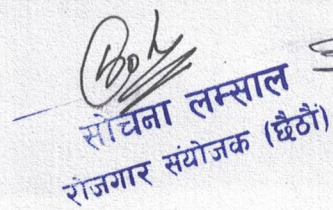 सोचना लम्साल
रोजगार संयोजक (छैठौं)